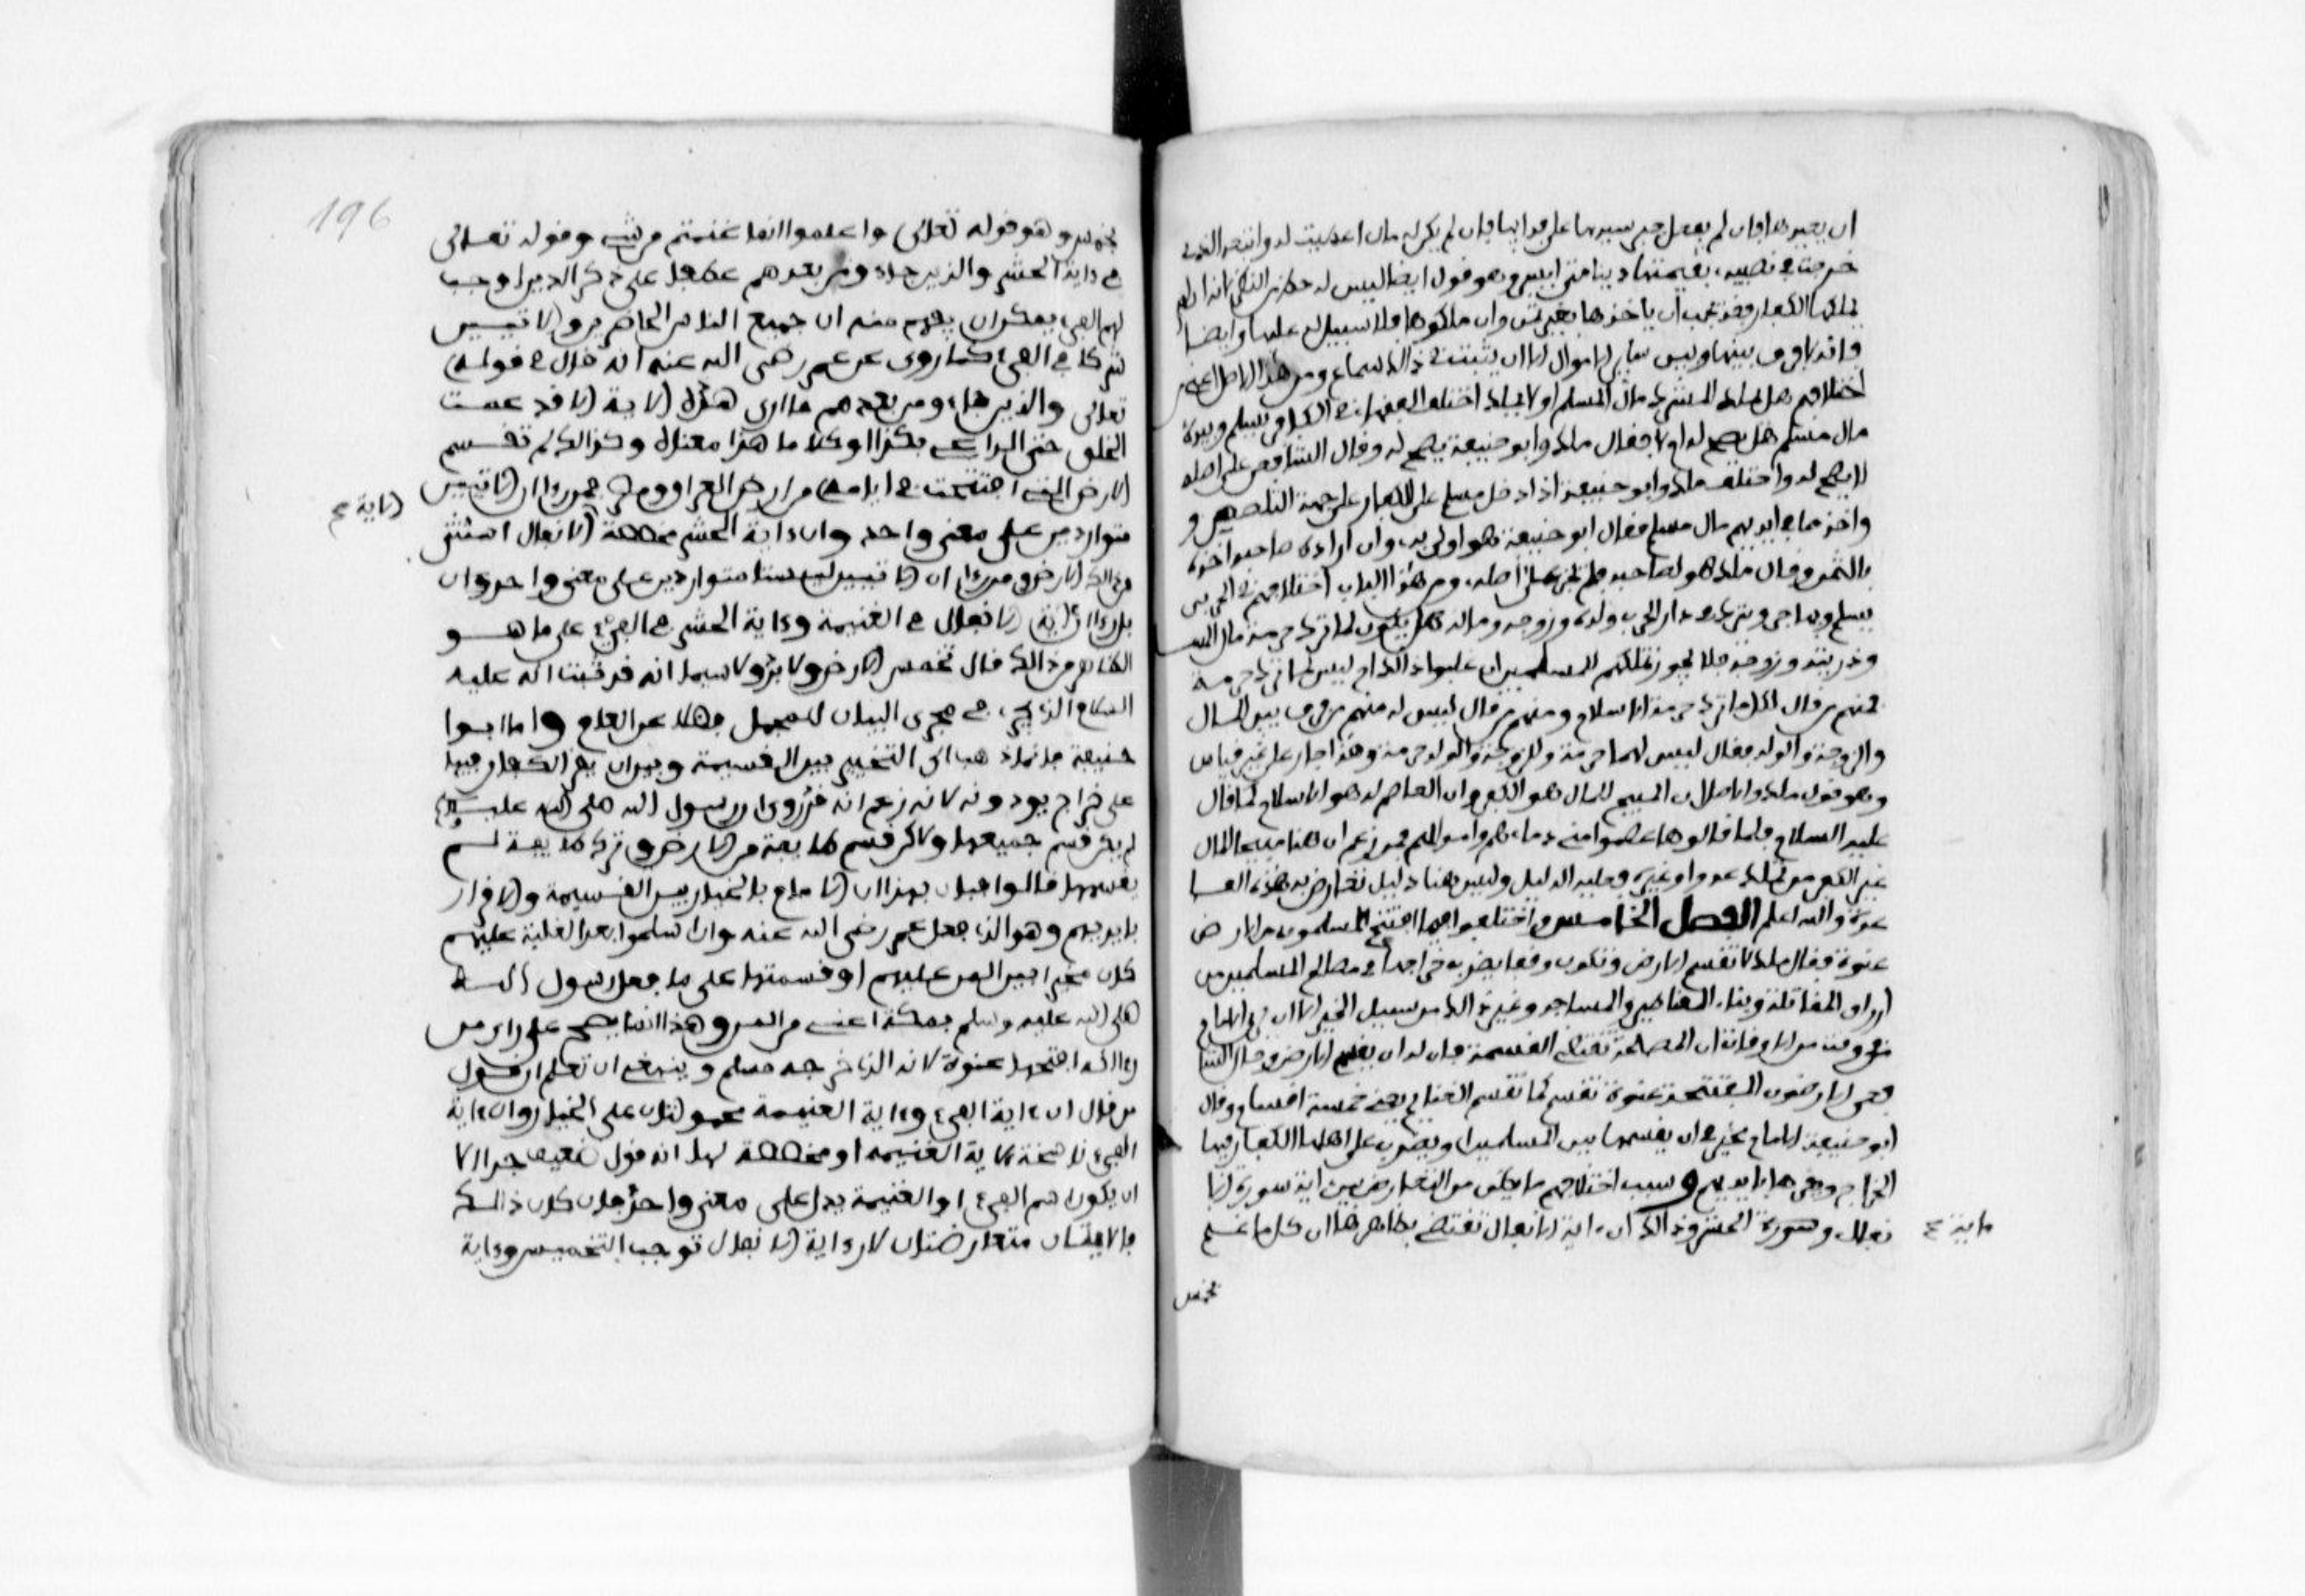 ان يجبر هذا فان لم يفعل جبر سيدها على فدائها فان لم يكن له مال اعطيت له واتبعه الذى
خرجت في نصيبه بقيمتها دينا متى ايسر وهو قول ايضا ليس له حظ من النظر لانه ان لم
يملكها الكفار فقد يجب ان ياخذها بغير ثمن وان ملكوها فلا سبيل له عليها وايضا
فانه لا فرق بينها وبين سائر الاموال الا ان يثبت في ذالك سماع ومن هذا الاصل اعنى
اختلافهم هل يملك المشرك مال المسلم او لا يملك اختلف الفقهاء في الكافر يسلم وبيده
مال مسلم هل يصح له او لا فقال ملك وابو حنيفة يصح له وقال الشافعى على اصله
لا يصح له واختلف ملك وابو حنيفة اذا دخل مسلم على الكفار على جهة التلصص و
واخذ مما في ايديهم مال مسلم فقال ابو حنيفة هو اولى به وان اراده صاحبه اخذه
بالثمن وقال ملك هو لصاحبه فلم يجر على اصله ومن هذا الباب اختلافهم في الحربي
يسلم ويهاجر ويترك في دار الحرب ولده وزوجه وماله هل يكون لما ترك حرمة مال المسلم
وذريته وزوجته فلا يجوز تملكهم للمسلمين ان غلبوا ذالك ام ليس لما ترك حرمة
فمنهم من قال لكل ما ترك حرمة الاسلام ومنهم من قال ليس له منهم من فرق بين المال
والزوجة والولد فقال ليس لهما حرمة وللزوجة والولد حرمة وهذا جار على غير قياس
وهو قول ملك والاصل ان المبيح للمال هو الكفر وان العاصم له هو الاسلام كما قال
عليه السلام فاما قالوها عصموا مني دماءهم واموالهم فمن زعم ان هنا مبيحا للمال
غير الكفر من تملك عدوا وغيره فعليه الدليل وليس هنا دليل تعارض به هذه القا
عدة والله اعلم الفصل الخامس واختلفوا فيما افتتح المسلمون من الارض
عنوة فقال ملك لا تقسم الارض وتكون وقفا يضرب خراجها في مصالح المسلمين من
ارزاق المقاتلة وبناء القناطر والمساجد وغير ذالك من سبيل الخير الا ان يرى الامام
في وقت من الاوقات ان المصلحة تقتضى القسمة فان له ان يقسم الارض وقال الشا
فعى الارضون المفتتحة عنوة تقسم كما تقسم الغنائم يعنى خمسة اقسام وقال
ابو حنيفة الامام مخير في ان يقسمها بين المسلمين او يضرب على اهلها الكفار فيها
الخراج ويقرها بايديهم وسبب اختلافهم ما يظن من التعارض بين اية سورة الانا
نفال وسورة الحشر وذالك ان اية الانفال تقتضى بظاهرها ان كل ما غنم
ما بين ع
يخمس
196
يخمس وهو قوله تعلى واعلموا انما غنمتم من شىء وقوله تعلى
في داية الحشر والذين جاءو من بعدهم عطفا على ذكر الذين اوجب
لهم الفىء يمكن ان يفهم منه ان جميع الناس الحاضرين والاتيين
شركا في الفىء كما روى عن عمر رضى الله عنه انه قال في قوله
تعلى والذين جاءو من بعدهم ما ارى هذه الاية الا قد عمت
الخلق حتى الراعى بكدا او كلاما هذا معناه وكذالك لم تقسم
الارض التى افتتحت في ايامه من ارض العراق ومصر فمن راى ان الايتين
الاية ع
متواردتين على معنى واحد وان داية الحشر مخصصة الانفال استثنى
من ذالك الارض ومن راى ان الايتين ليستا متواردتين على معنى واحد وان
بل راى ان اية الانفال في الغنيمة وداية الحشر في الفىء على ما هو
الظاهر من ذالك قال تخمس الارض ولا بد ولا سيما انه قد ثبت انه عليه
السلام الذى يجرى مجرى البيان للمجمل فضلا عن العام واما ابوا
حنيفة فانما ذهب الى التخيير بين القسمة وبين ان يقر الكفار فيها
على خراج يودونه لانه زعم انه قد روى ان رسول الله صلى الله عليه وسلم
لم يكن قسم جميعها ولاكن قسم طايفة من الارض وترك طايفة لم
يقسمها قالوا فبان بهذا ان الامام بالخيار بين القسمة والاقرار
بايديهم وهو الذى فعل عمر رضى الله عنه وان اسلموا بعد الغلبة عليهم
كان مخيرا بين المن عليهم او قسمتها على ما فعل رسول الله
صلى الله عليه وسلم بمكة اعنى من المن وهذا انما يصح على راى من
راى انه افتتحها عنوة لانه الذى خرجه مسلم وينبغى ان تعلم ان قول
من قال ان اية الفىء واية الغنيمة محمولتان على الخيار وان اية
الفىء ناسخة لاية الغنيمة او مخصصة لها انه قول ضعيف جدا الا
ان يكون اسم الفىء او الغنيمة يدل على معنى واحد فان كان ذالك
فالايتان متعارضتان لان داية الانفال توجب التخميس وداية